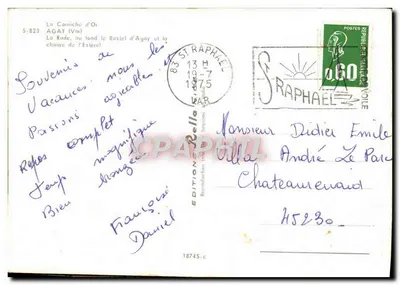 La Corniche d'Or
S-823 AGAY (Var)
La Rade, au fond le Rastel d'Agay et la
chaîne de l'Estérel
Souvenirs de
Vacances, nous les
Passons agréables et
Repos complet
Temps magnifique
Bien bronzé
Françoise
Daniel
EDITIONS Rella
18745-c
83 ST RAPHAEL
13 H
19-7
1975
VAR
ST RAPHAEL
VOILE
POSTES
0,60
Monsieur Didier Emile
Villa André Le Parc
Chateaurenaud
45230